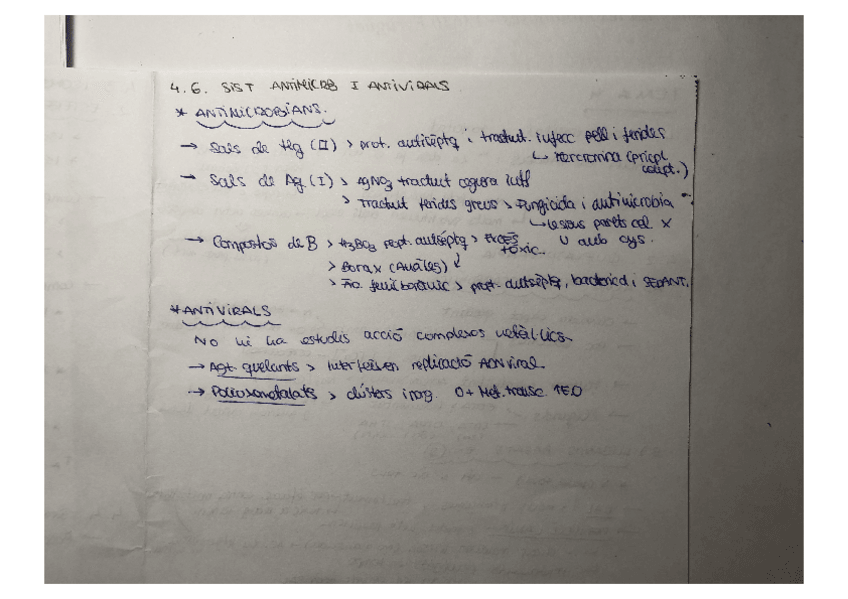 4.6. SIST ANTIMICROB I ANTIVIRALS
* ANTIMICROBIANS.
→ Sals de Hg (II) > prot. antisèptq i tractmt. infecc pell i ferides
↳ Mercromina (precpt.)
→ Sals de Ag (I) > AgNO3 tractmt ceguera inf
> Tractmt ferides greus > Fungicida i antimicrobia
↳ lesions parets cel x
U amb cys.
→ Compostos de B > H3BO3 antisèptq > Excés tòxic..
> Borax (Anàleg)
> Àc. fenilborònic > prot. antisèptq, bactericid i SEDANT.
* ANTIVIRALS
No hi ha estudis acció complexos metàl·lics.
→ Agt. quelants > Interfeixen replicació ADN viral.
→ Polioxometalats > clústers inorg. O + Met. transc. TEO